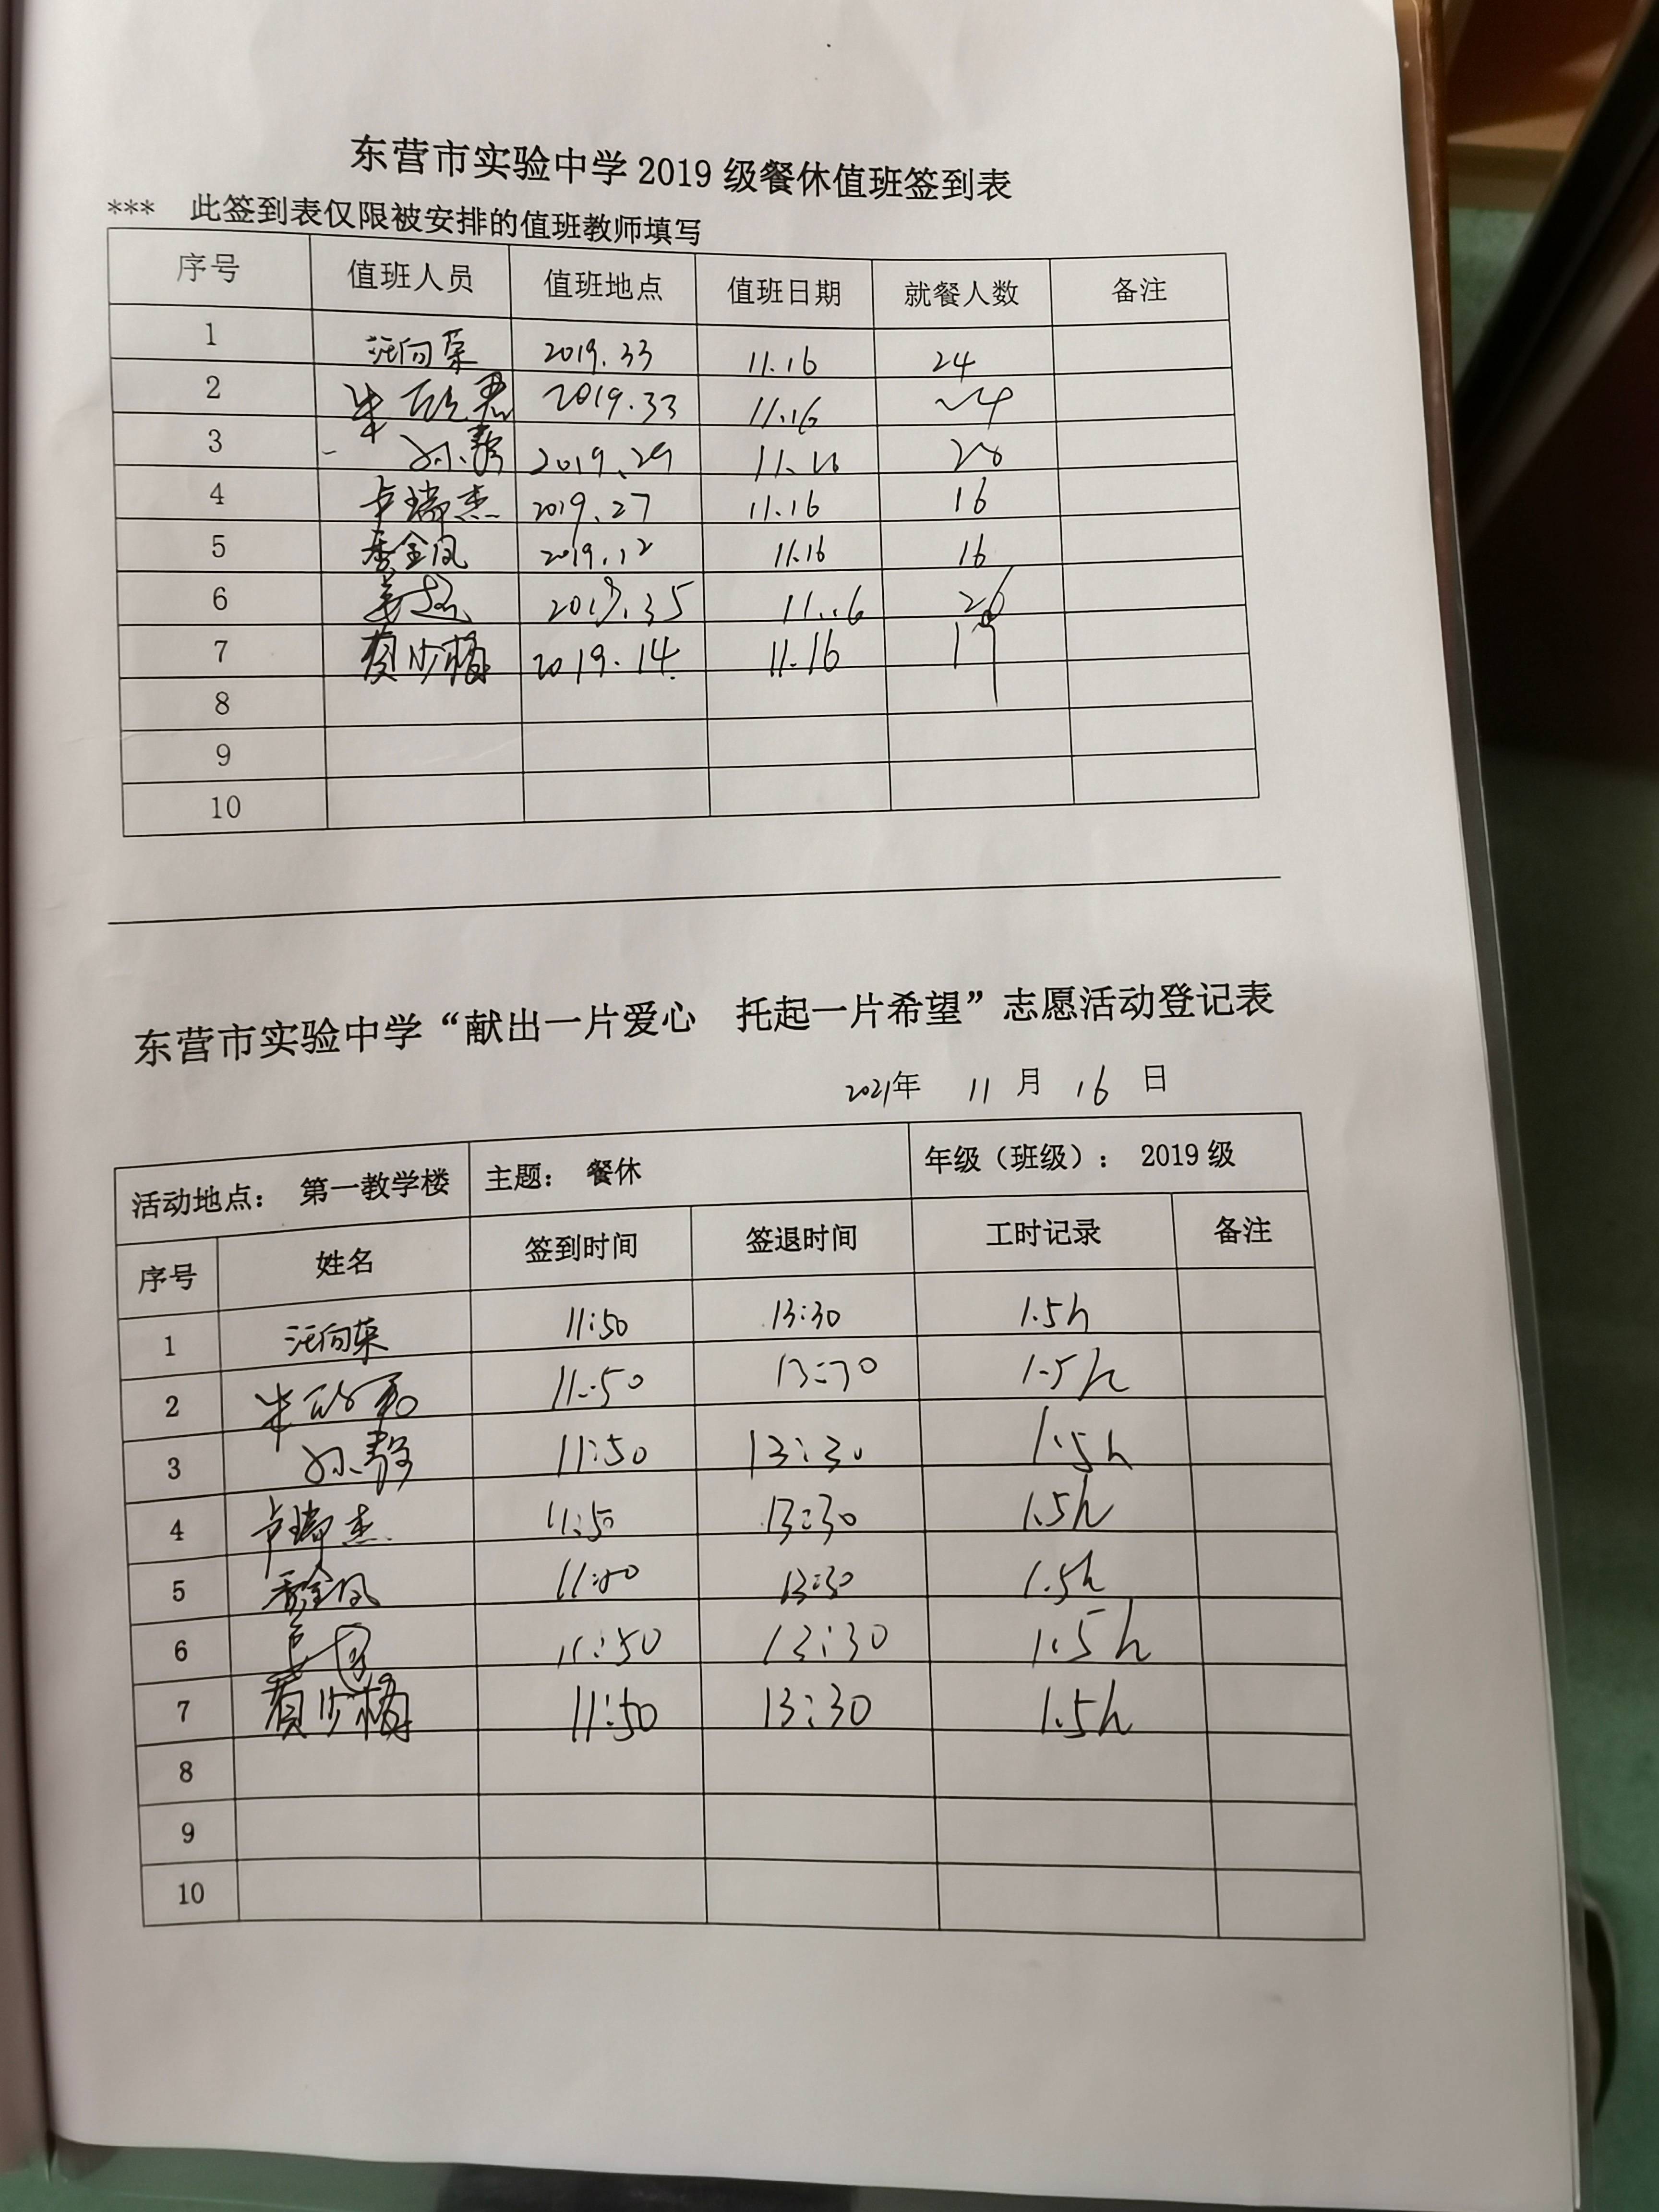 东营市实验中学 2019 级餐休值班签到表
*** 此签到表仅限被安排的值班教师填写
序号 值班人员 值班地点 值班日期 就餐人数 备注
1 汪向荣 2019.33 11.16 24
2 2019.33 11.16 24
3 孙静 2019.29 11.16
4 卢瑞杰 2019.27 11.16 16
5 季金凤 2019.12 11.16 16
6 姜超 2019.35 11.16 26
7 2019.14 11.16 19
8
9
10
东营市实验中学“献出一片爱心 托起一片希望”志愿活动登记表
2021年 11 月 16 日
活动地点： 第一教学楼 主题： 餐休 年级（班级）： 2019 级
序号 姓名 签到时间 签退时间 工时记录 备注
1 汪向荣 11:50 13:30 1.5h
2 11:50 13:30 1.5h
3 孙静 11:50 13:30 1.5h
4 卢瑞杰 11:50 13:30 1.5h
5 季金凤 11:50 13:30 1.5h
6 11:50 13:30 1.5h
7 11:50 13:30 1.5h
8
9
10